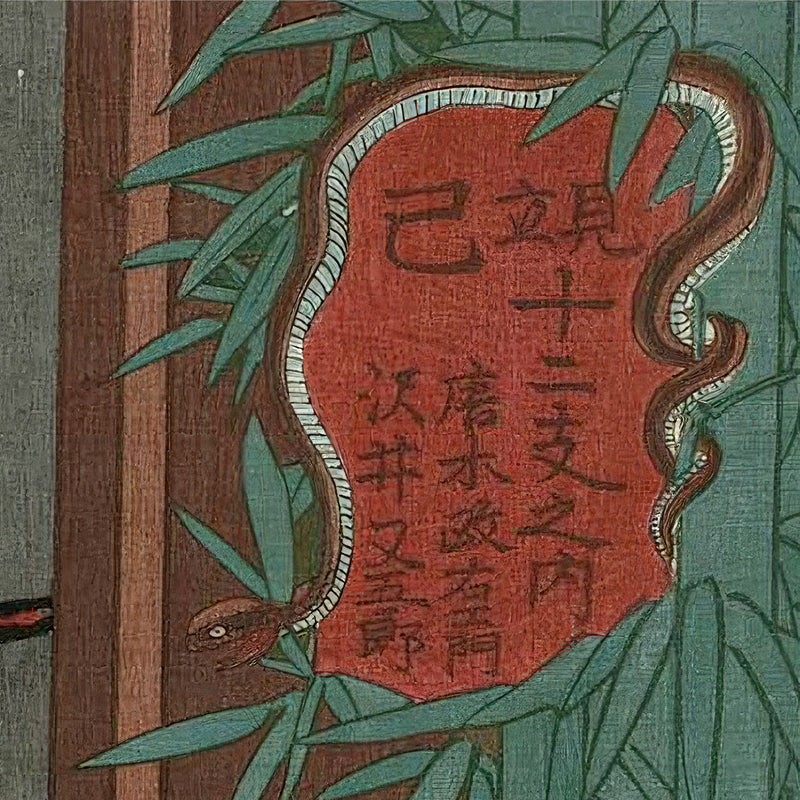 見立十二支之内
己
唐木政右エ門
沢井又五郎